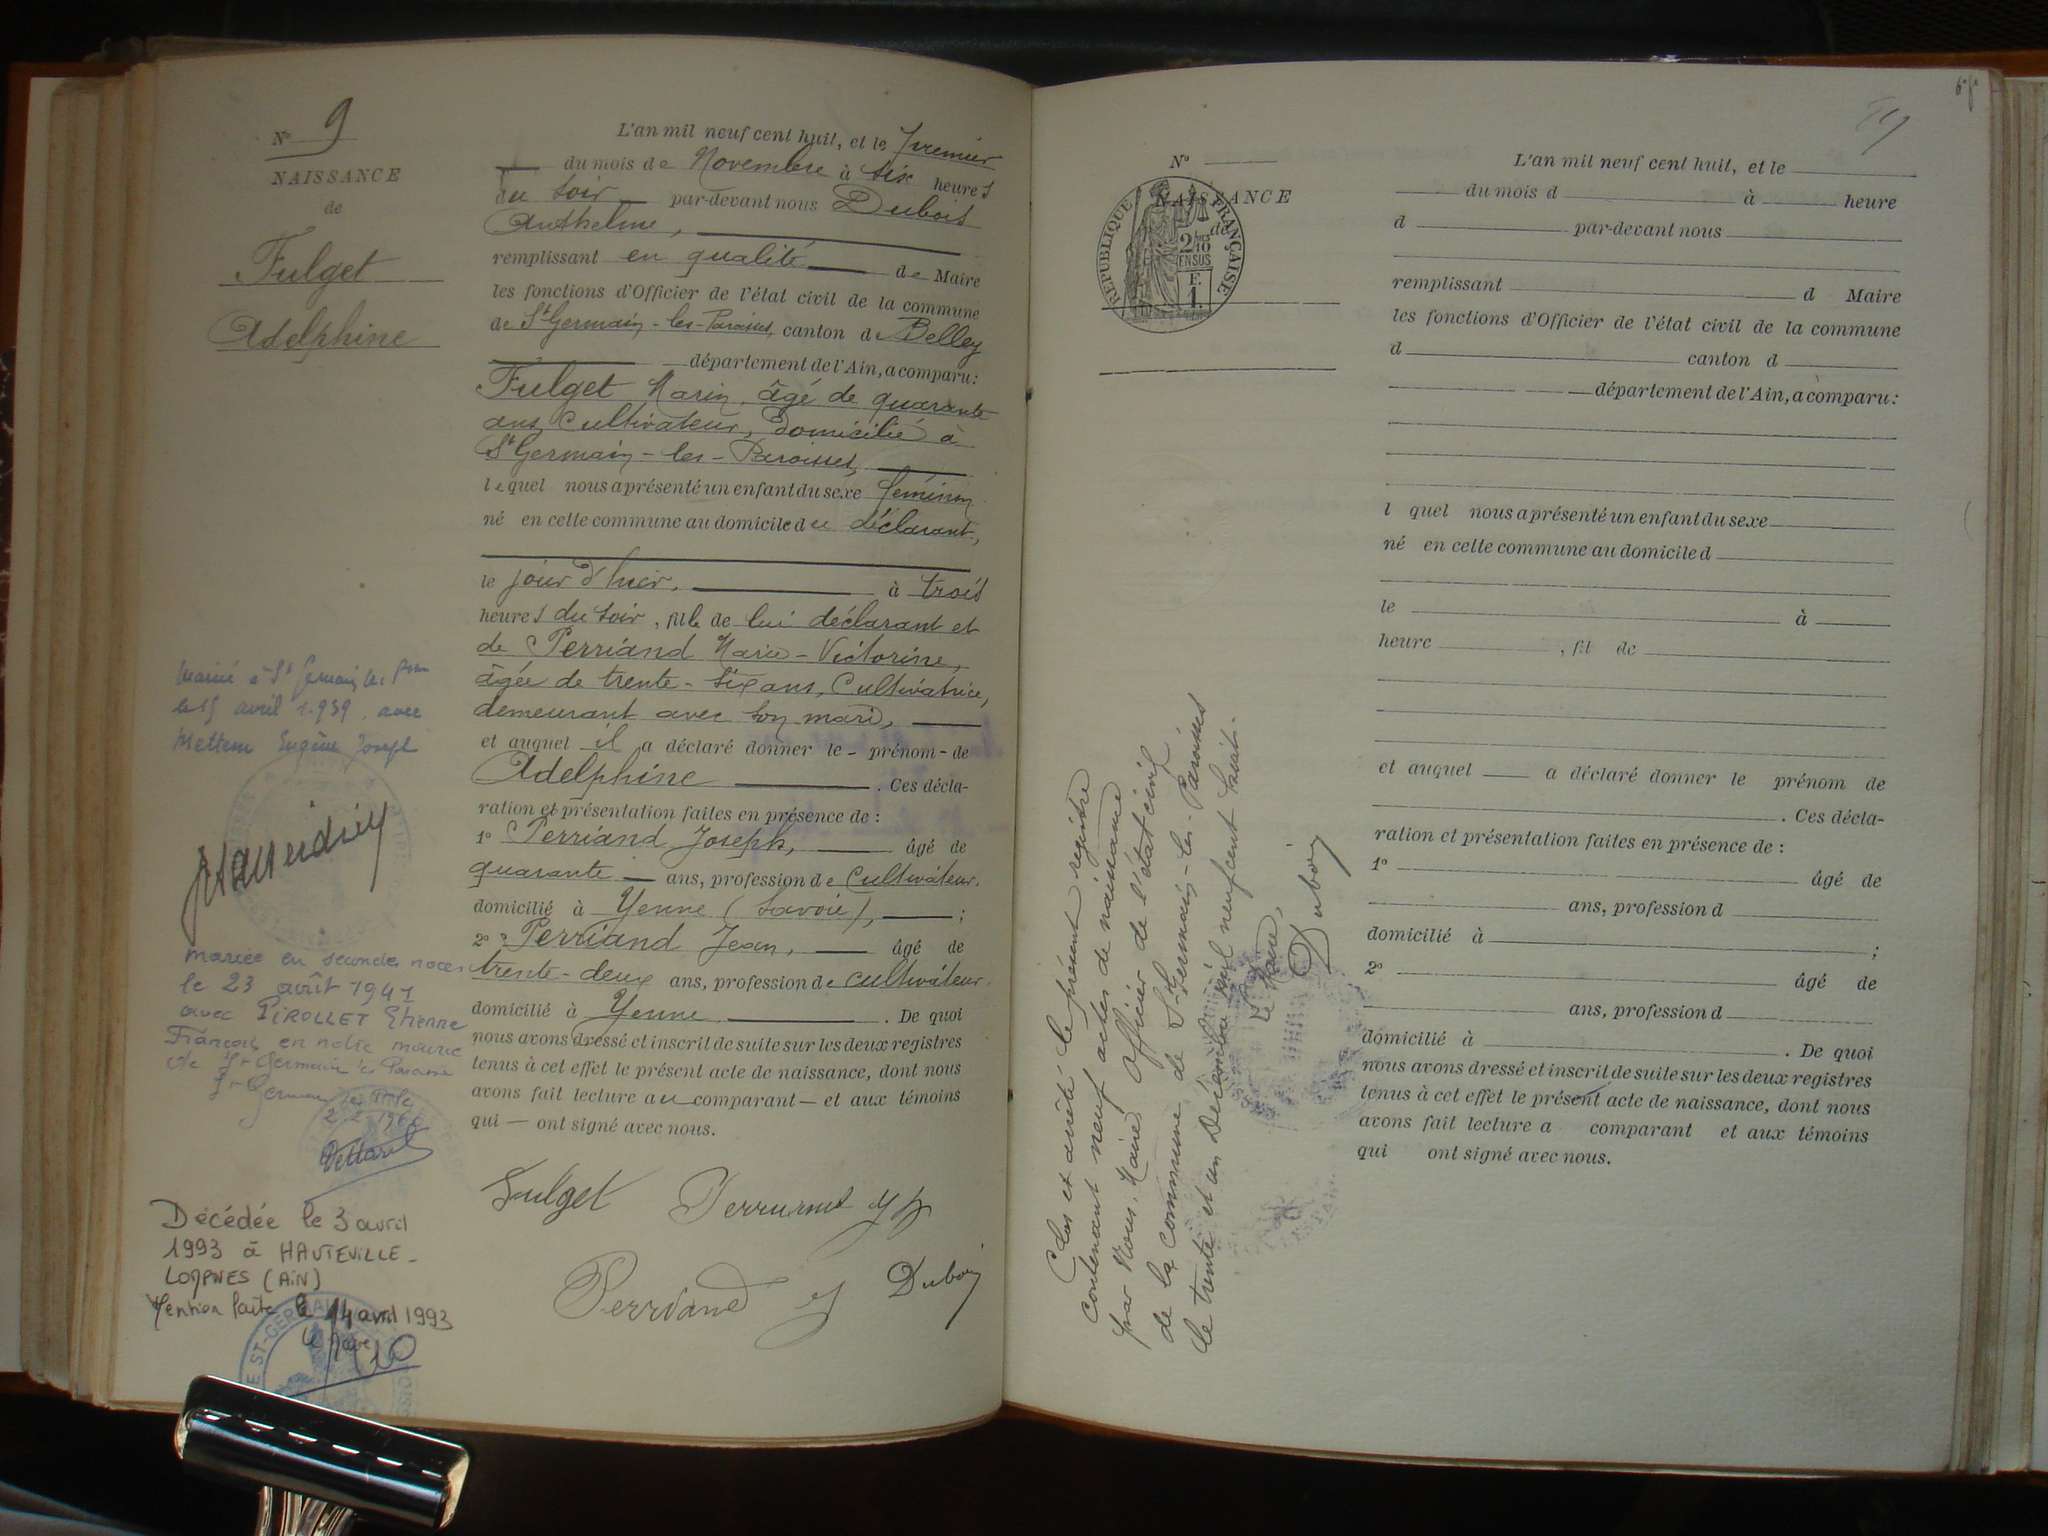 N° 9
NAISSANCE
de
Fulget
Adelphine
Marié à St Germain les
le 15 avril 1.939 avec
Mettem Eugène Joseph
mariée en secondes noces
le 23 août 1941
avec PIROLLET Etienne
François en notre mairie
de St Germain les Paroisses
St Germain les
2-2-1966
Décédée le 3 avril
1993 à HAUTEVILLE-
LOMPNES (AIN)
Mention faite le 14 avril 1993
Le Maire
L'an mil neuf cent huit, et le premier
du mois de Novembre à six heures
du soir par-devant nous Dubois
Anthelme,
remplissant en qualité de Maire
les fonctions d'Officier de l'état civil de la commune
de St Germain-les-Paroisses, canton de Belley
département de l'Ain, a comparu :
Fulget Marin, âgé de quarante
ans, Cultivateur, domicilié à
St Germain-les-Paroisses,
lequel nous a présenté un enfant du sexe féminin
né en cette commune au domicile du déclarant,
le jour d'hier, à trois
heures du soir, fille de lui déclarant et
de Perriand Marie-Victorine,
âgée de trente-six ans, Cultivatrice,
demeurant avec son mari,
et auquel il a déclaré donner le prénom de
Adelphine . Ces décla-
ration et présentation faites en présence de :
1° Perriand Joseph, âgé de
quarante ans, profession de Cultivateur,
domicilié à Yenne (Savoie), ;
2° Perriand Jean, âgé de
trente-deux ans, profession de cultivateur,
domicilié à Yenne . De quoi
nous avons dressé et inscrit de suite sur les deux registres
tenus à cet effet le présent acte de naissance, dont nous
avons fait lecture au comparant et aux témoins
qui ont signé avec nous.
Fulget
Perriand J
Dubois
N°
NAISSANCE
de
RÉPUBLIQUE FRANÇAISE
2/10 EN SUS
E.
1.
Clos et arrêté le présent registre
contenant neuf actes de naissance
par Nous, Maire, Officier de l'état civil
de la commune de St Germain-les-Paroisses
le trente et un Décembre mil neuf cent huit.
Le Maire,
Dubois
L'an mil neuf cent huit, et le
du mois d à heure
d par-devant nous
remplissant d Maire
les fonctions d'Officier de l'état civil de la commune
d canton d
département de l'Ain, a comparu :
l quel nous a présenté un enfant du sexe
né en cette commune au domicile d
le à
heure , fil de
et auquel a déclaré donner le prénom de
. Ces décla-
ration et présentation faites en présence de :
1° âgé de
ans, profession d
domicilié à ;
2° âgé de
ans, profession d
domicilié à . De quoi
nous avons dressé et inscrit de suite sur les deux registres
tenus à cet effet le présent acte de naissance, dont nous
avons fait lecture a comparant et aux témoins
qui ont signé avec nous.